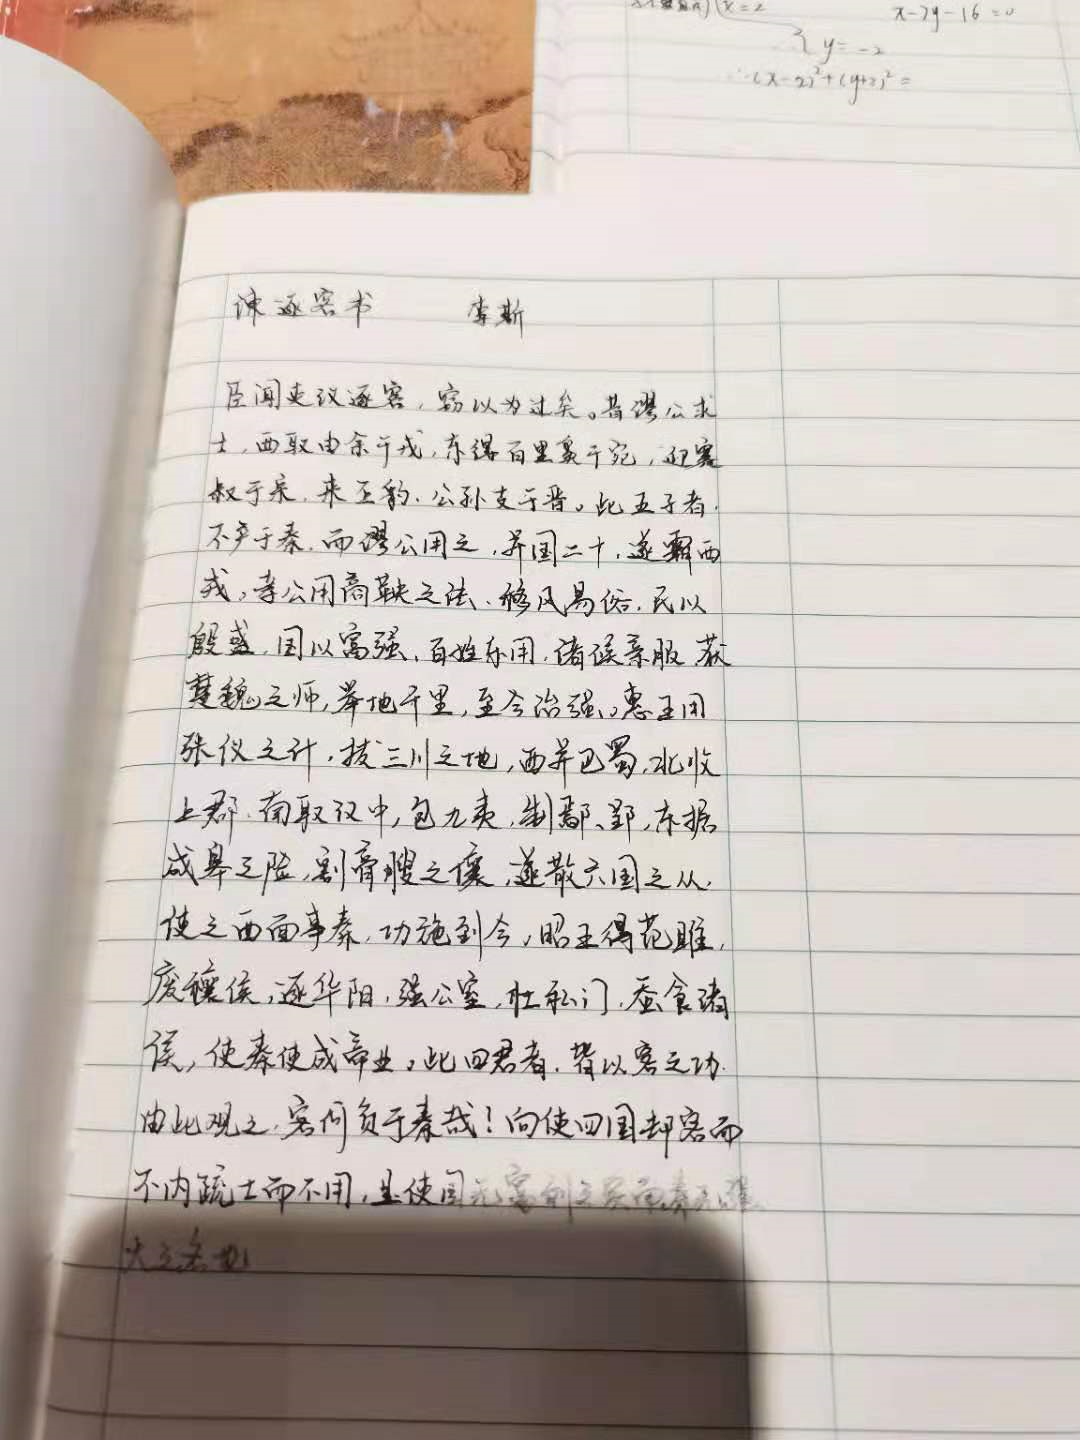 x=2
x-7y-16=0
y=-2
(x-2)²+(y+2)²=
谏逐客书 李斯
臣闻吏议逐客，窃以为过矣。昔缪公求
士，西取由余于戎，东得百里奚于宛，迎蹇
叔于宋，来丕豹、公孙支于晋。此五子者，
不产于秦，而缪公用之，并国二十，遂霸西
戎。孝公用商鞅之法，移风易俗，民以
殷盛，国以富强，百姓乐用，诸侯亲服，获
楚魏之师，举地千里，至今治强。惠王用
张仪之计，拔三川之地，西并巴蜀，北收
上郡，南取汉中，包九夷，制鄢、郢，东据
成皋之险，割膏腴之壤，遂散六国之从，
使之西面事秦，功施到今。昭王得范雎，
废穰侯，逐华阳，强公室，杜私门，蚕食诸
侯，使秦使成帝业。此四君者，皆以客之功。
由此观之，客何负于秦哉！向使四国却客而
不内疏士而不用，且使国无富利之实而秦无强
大之名也